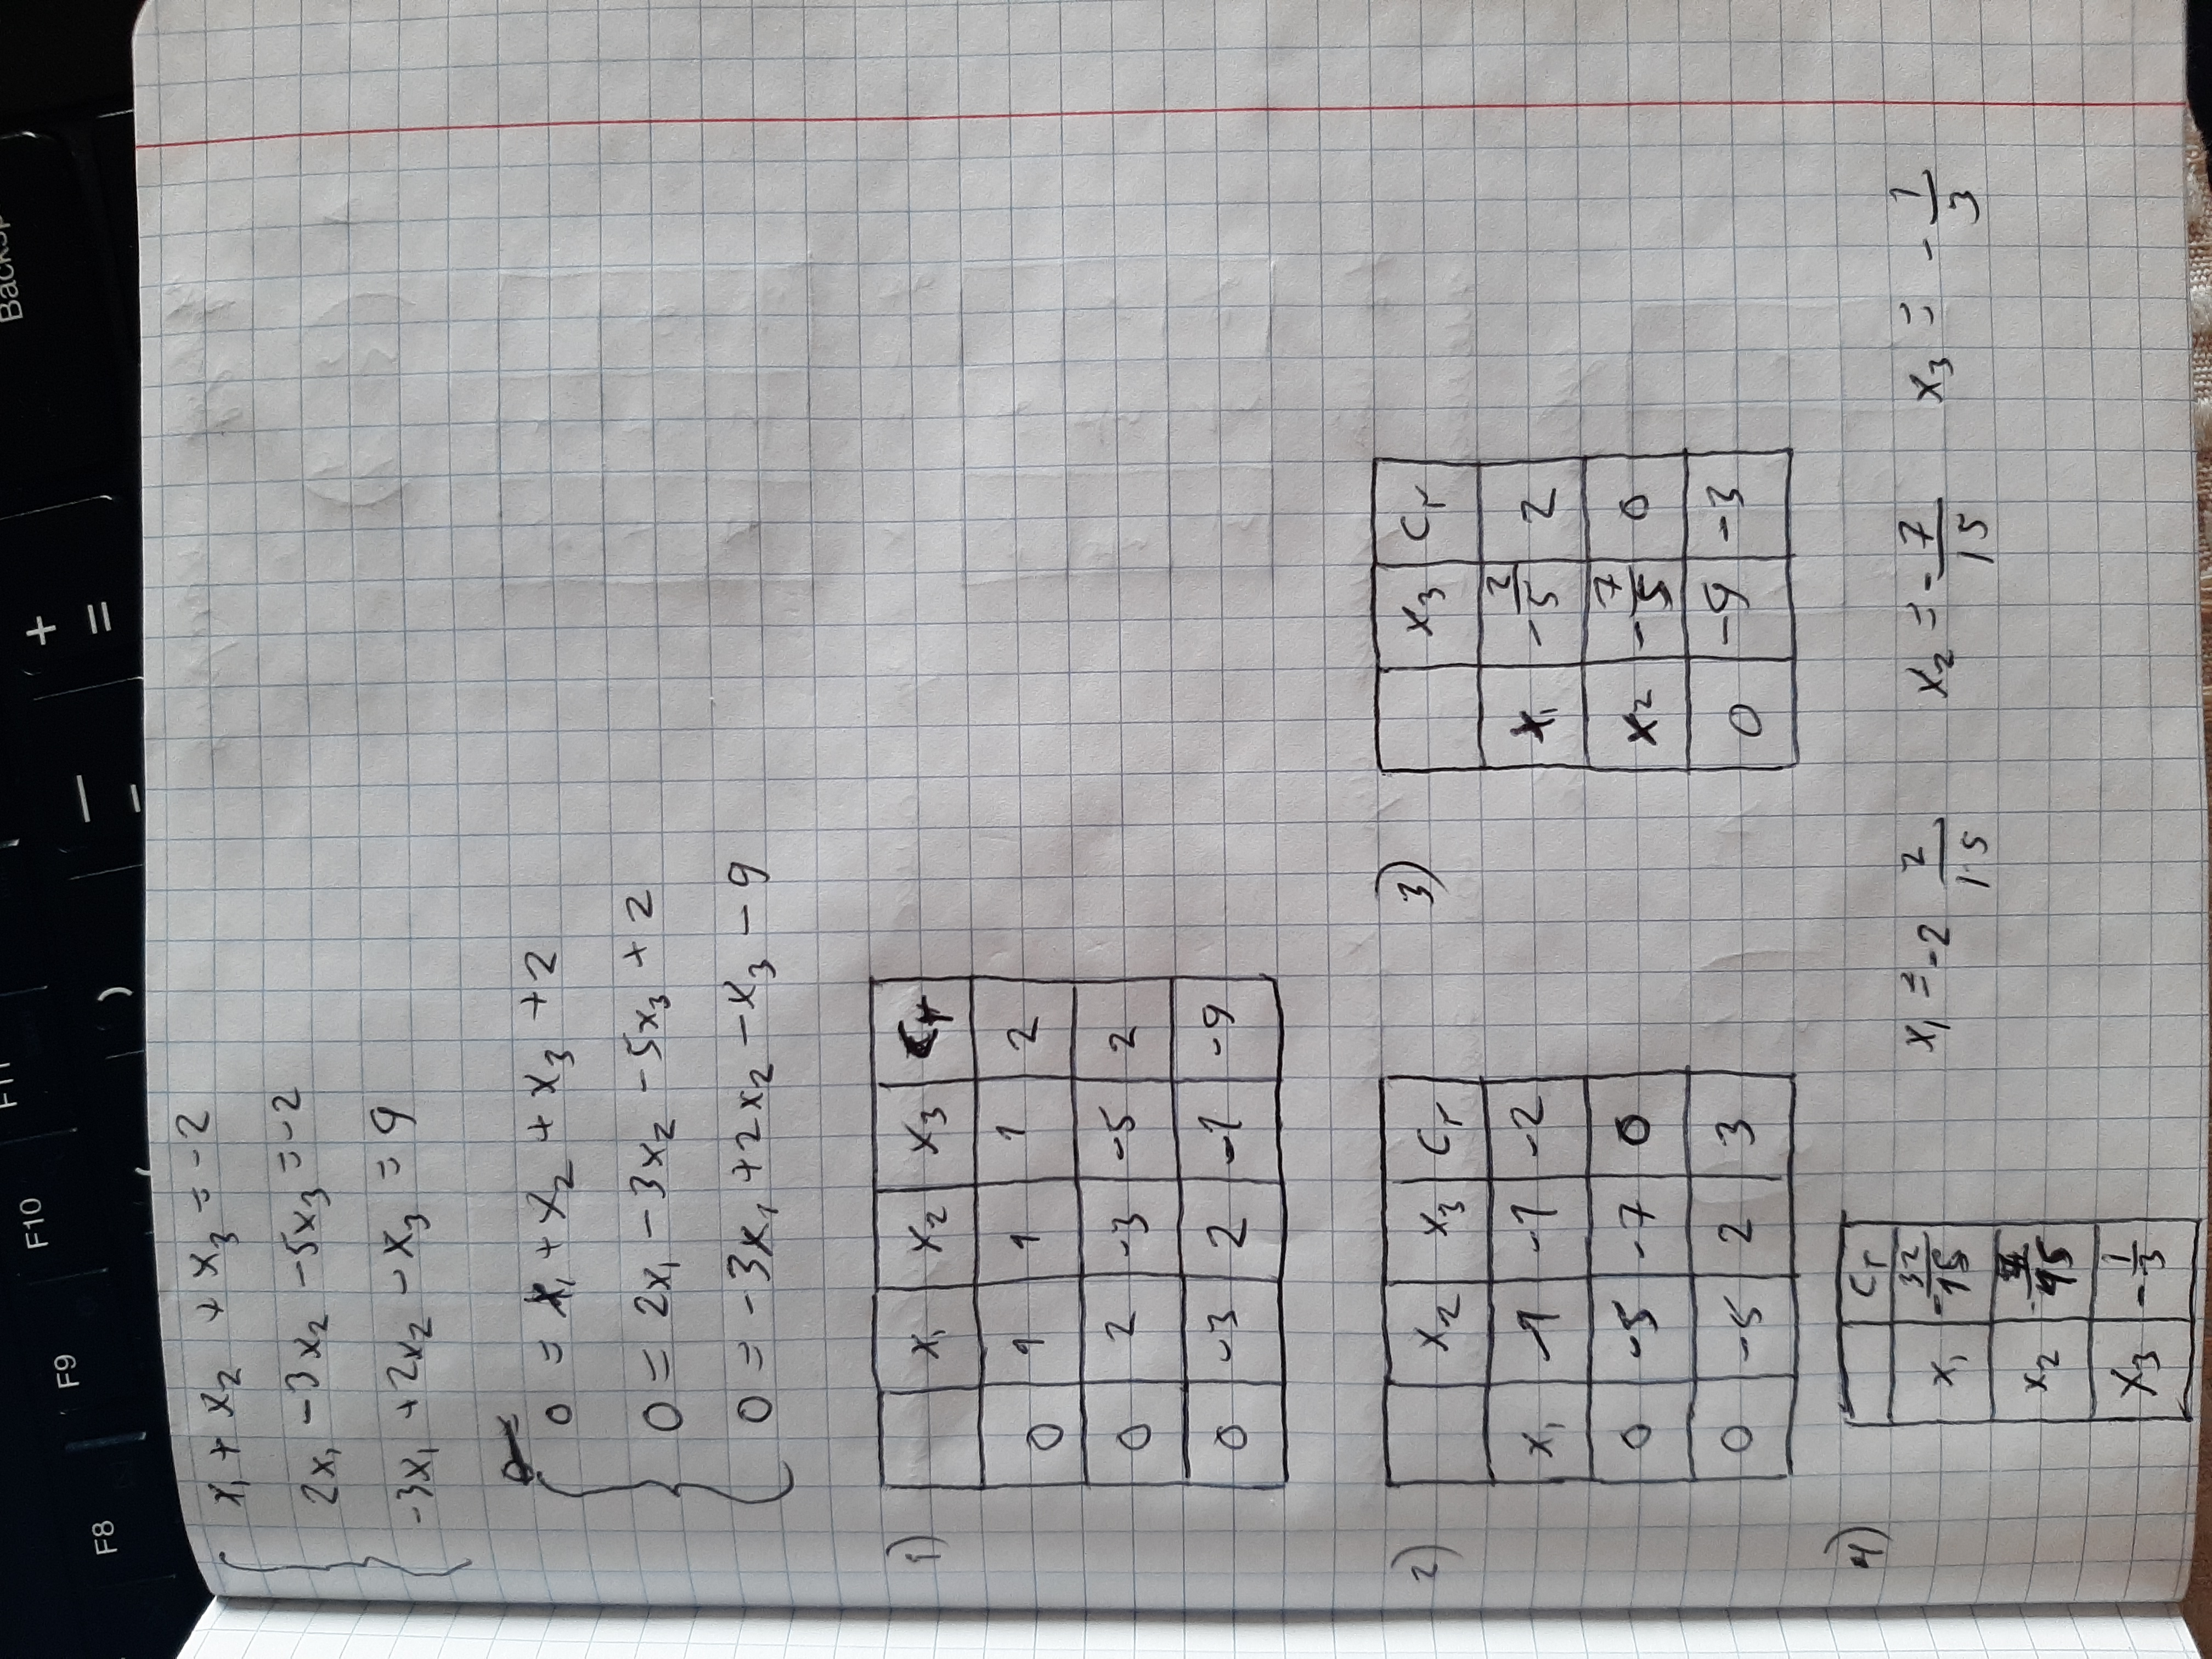 F8 F9 F10 F11 ) — + = Backsp
x₁ + x₂ + x₃ = -2
2x₁ - 3x₂ - 5x₃ = -2
-3x₁ + 2x₂ - x₃ = 9
0 = x₁ + x₂ + x₃ + 2
0 = 2x₁ - 3x₂ - 5x₃ + 2
0 = -3x₁ + 2x₂ - x₃ - 9
1)
x₁ x₂ x₃ Cr
0 1 1 1 2
0 2 -3 -5 2
0 -3 2 -1 -9
2)
x₂ x₃ Cr
x₁ -1 -1 -2
0 -5 -7 0
0 -5 2 3
3)
x₃ Cr
x₁ -2/5 2
x₂ -7/5 0
0 -9 -3
4)
Cr
x₁ -32/15
x₂
x₃ -1/3
x₁ = -2 2/15 x₂ = -7/15 x₃ = -1/3